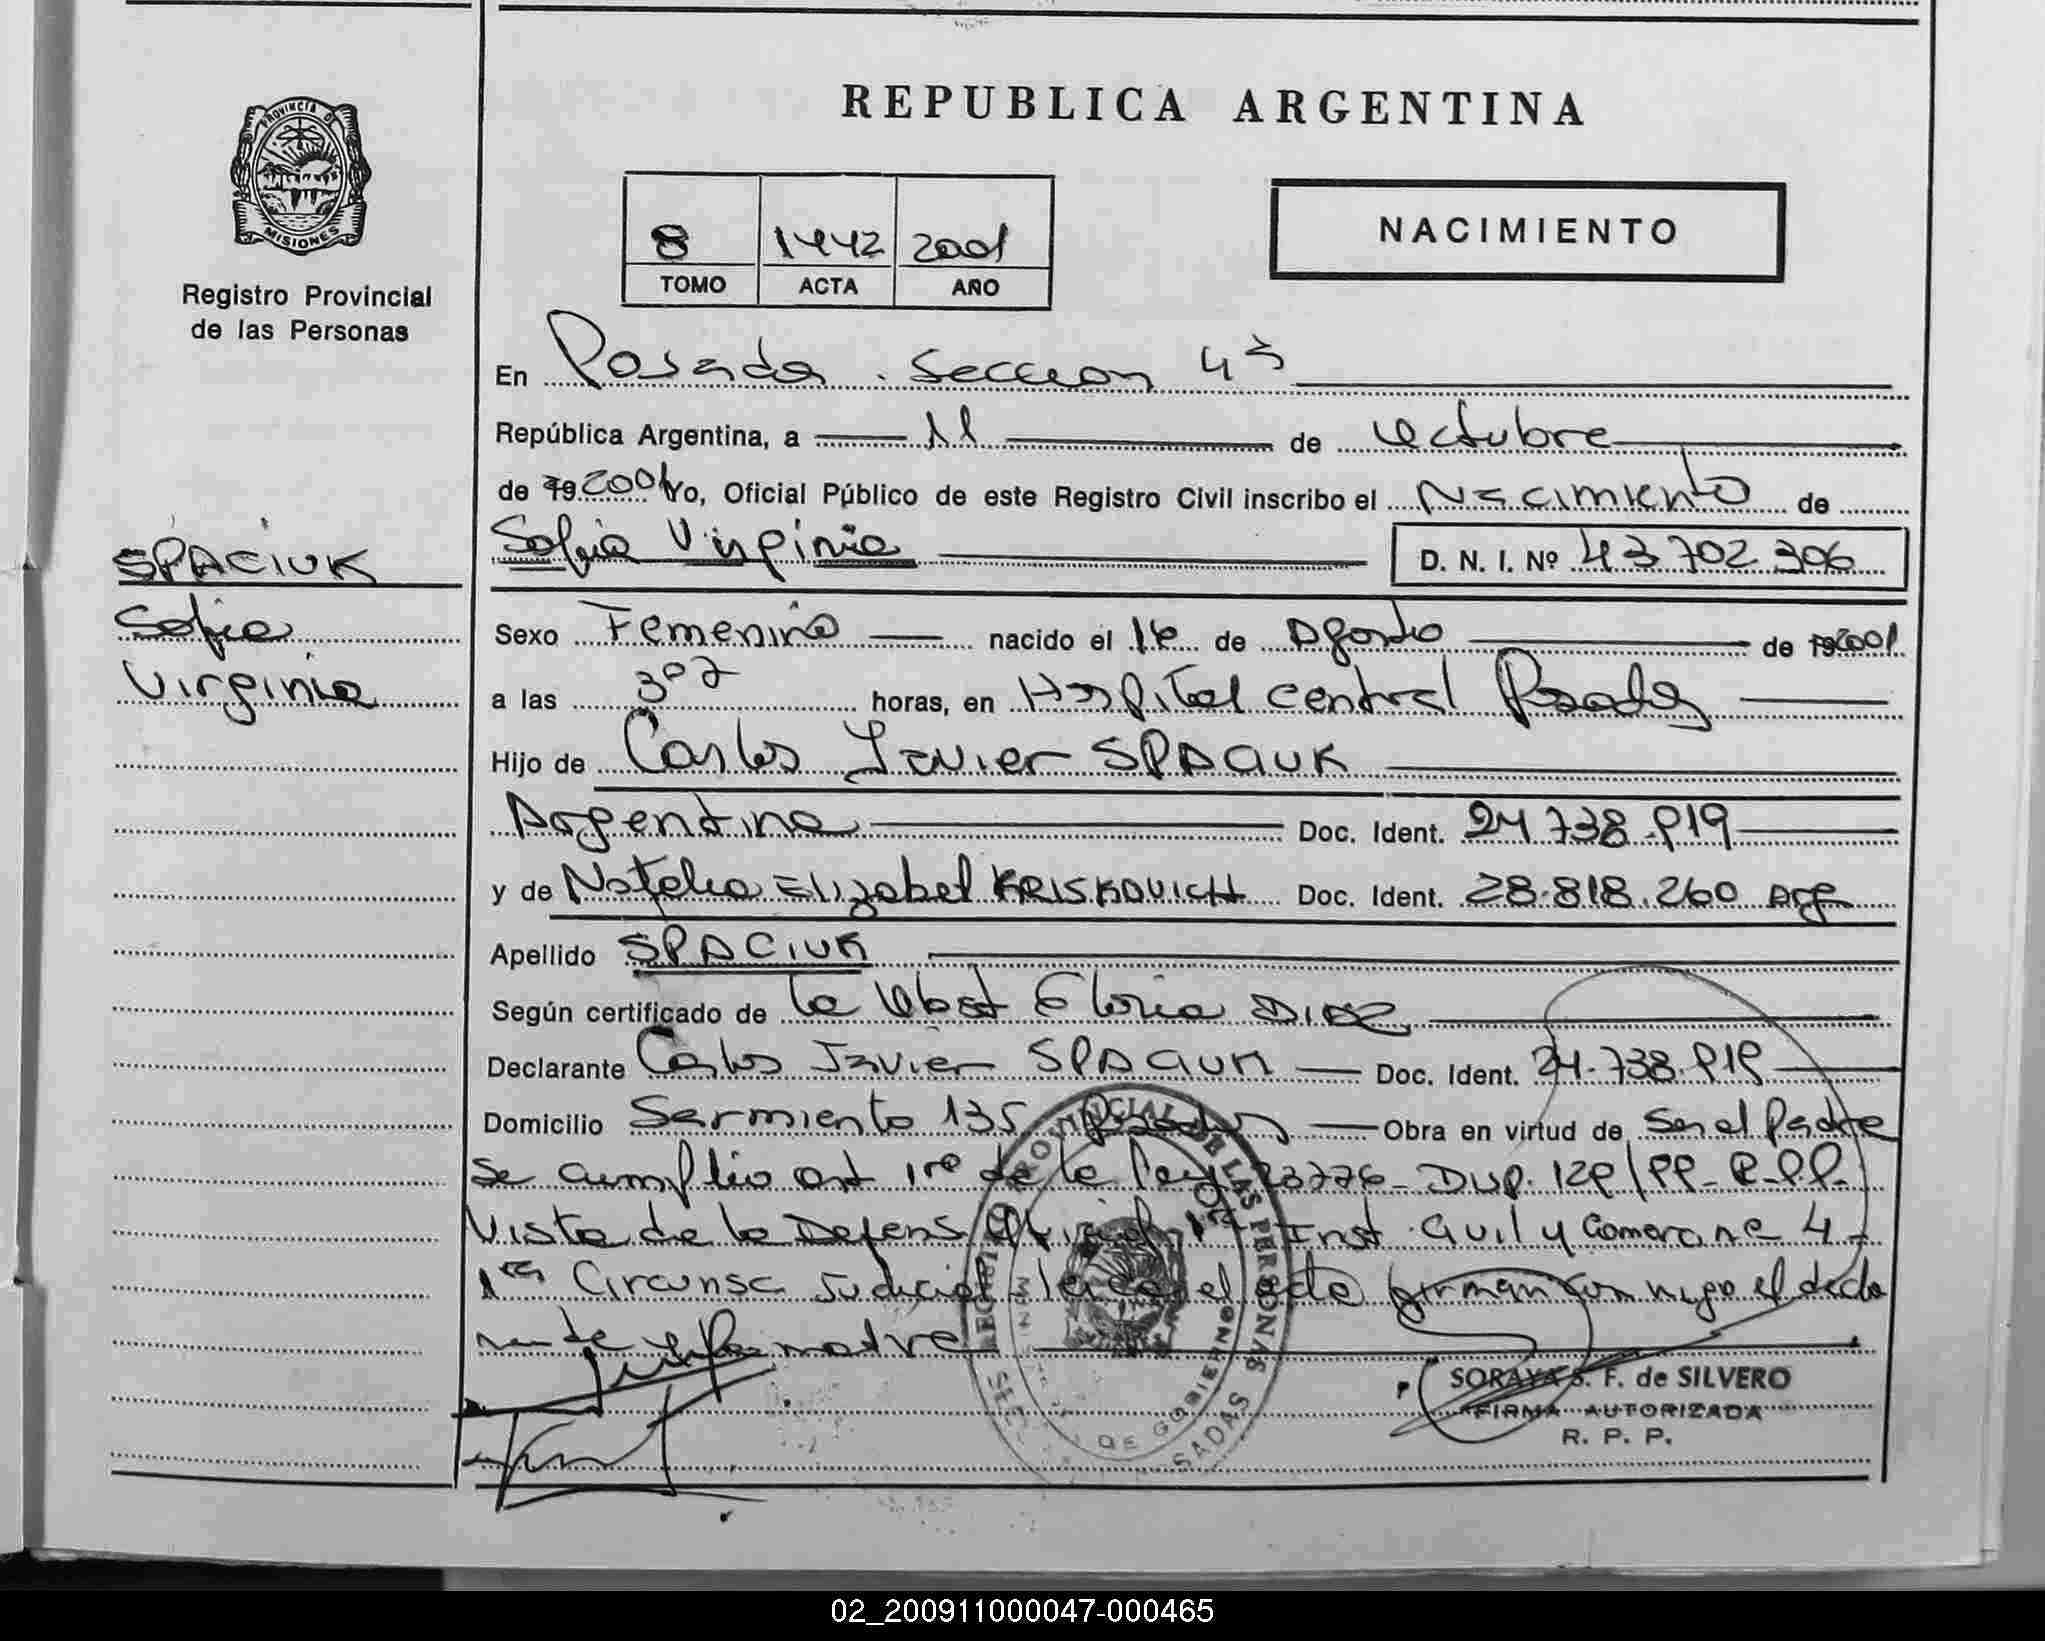 REPUBLICA ARGENTINA
PROVINCIA DE
MISIONES
Registro Provincial
de las Personas
8 1442 2001
TOMO ACTA AÑO
NACIMIENTO
En Posadas. Seccion 4ª
República Argentina, a 11 de Octubre
de 19 2001 Yo, Oficial Público de este Registro Civil inscribo el Nacimiento de
Sofia Virginia D. N. I. Nº 43 702 306
SPACIUK
Sofia
Virginia
Sexo Femenino nacido el 16 de Agosto de 19 2001
a las horas, en Hospital central Posadas
Hijo de Carlos Javier SPACIUK
Argentina Doc. Ident. 24.738.919
y de Natalia Elizabet KRISKOVICH Doc. Ident. 28.818.260 Arg
Apellido SPACIUK
Según certificado de la Obst Gloria DIAZ
Declarante Carlos Javier SPACIUK Doc. Ident. 24.738.919
Domicilio Sarmiento 135 Posadas Obra en virtud de Ser el Padre
Se cumplio art 1ro de la ley 23776 - Disp.
Vista de la Defens Oficial 1ra Inst. Civil y Comerc nº 4 -
1ra Circunsc Judicial leida el acta firman conmigo el decla
rante y la madre
REGISTRO PROVINCIAL DE LAS PERSONAS
DE GOBIERNO
SORAYA S. F. de SILVERO
FIRMA AUTORIZADA
R. P. P.
02_200911000047-000465